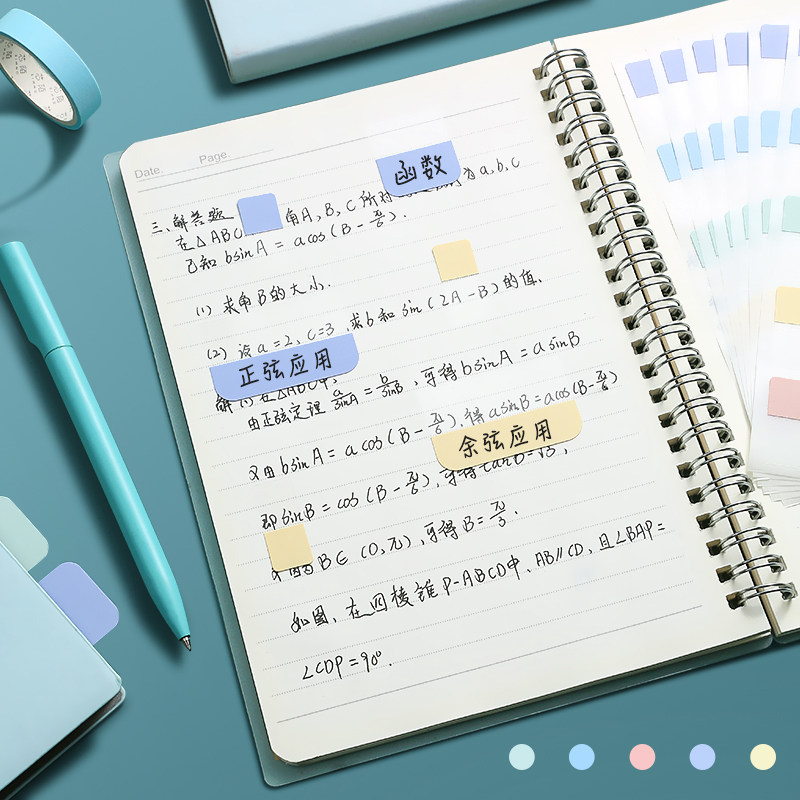 Date. Page.
函数
三、解答题
在△ABC 角A,B,C所对 为a,b,c
已知 bsinA = acos(B-π/6).
(1) 求角B的大小.
(2) 设a=2, c=3, 求b和sin(2A-B)的值.
正弦应用
解(1)在△ABC中,
由正弦定理 a/sinA = b/sinB, 可得bsinA = asinB
又由bsinA = acos(B-π/6), 得asinB=acos(B-π/6)
余弦应用
即sinB = cos(B-π/6), 可得tanB=√3,
B∈(0,π), 可得B=π/3.
如图, 在四棱锥P-ABCD中, AB//CD, 且∠BAP=
∠CDP=90°.